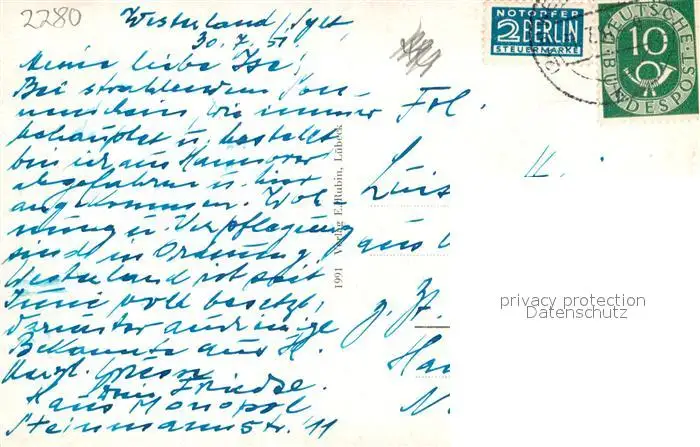 2280
Westerland/Sylt
30.7.51.
Meine liebe Ise!
Bei strahlendem Son-
nenschein, wie immer
behauptet u. bestellt
bin ich aus Hannover
abgefahren u. hier
angekommen. Woh-
nung u. Verpflegung
sind in Ordnung.
Westerland ist seit
Juni voll besetzt,
darunter auch einige
Bekannte aus H.
Herzl. Grüsse
Dein Friedel.
Haus Monopol
Steinmannstr. 11
1991 Verlag E. Rubin, Lübeck
NOTOPFER
2 BERLIN
STEUERMARKE
DEUTSCHE
10
BUNDESPOST
Frl.
K
Luis
aus
z. Zt.
Han
N.
privacy protection
Datenschutz